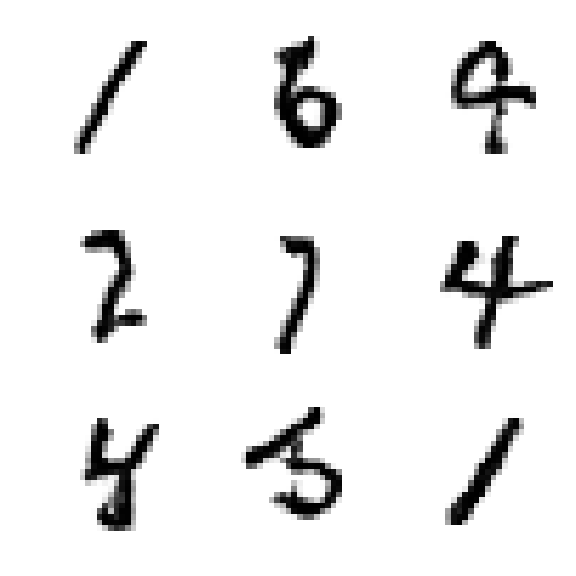 1 6 9
2 7 4
4 5 1